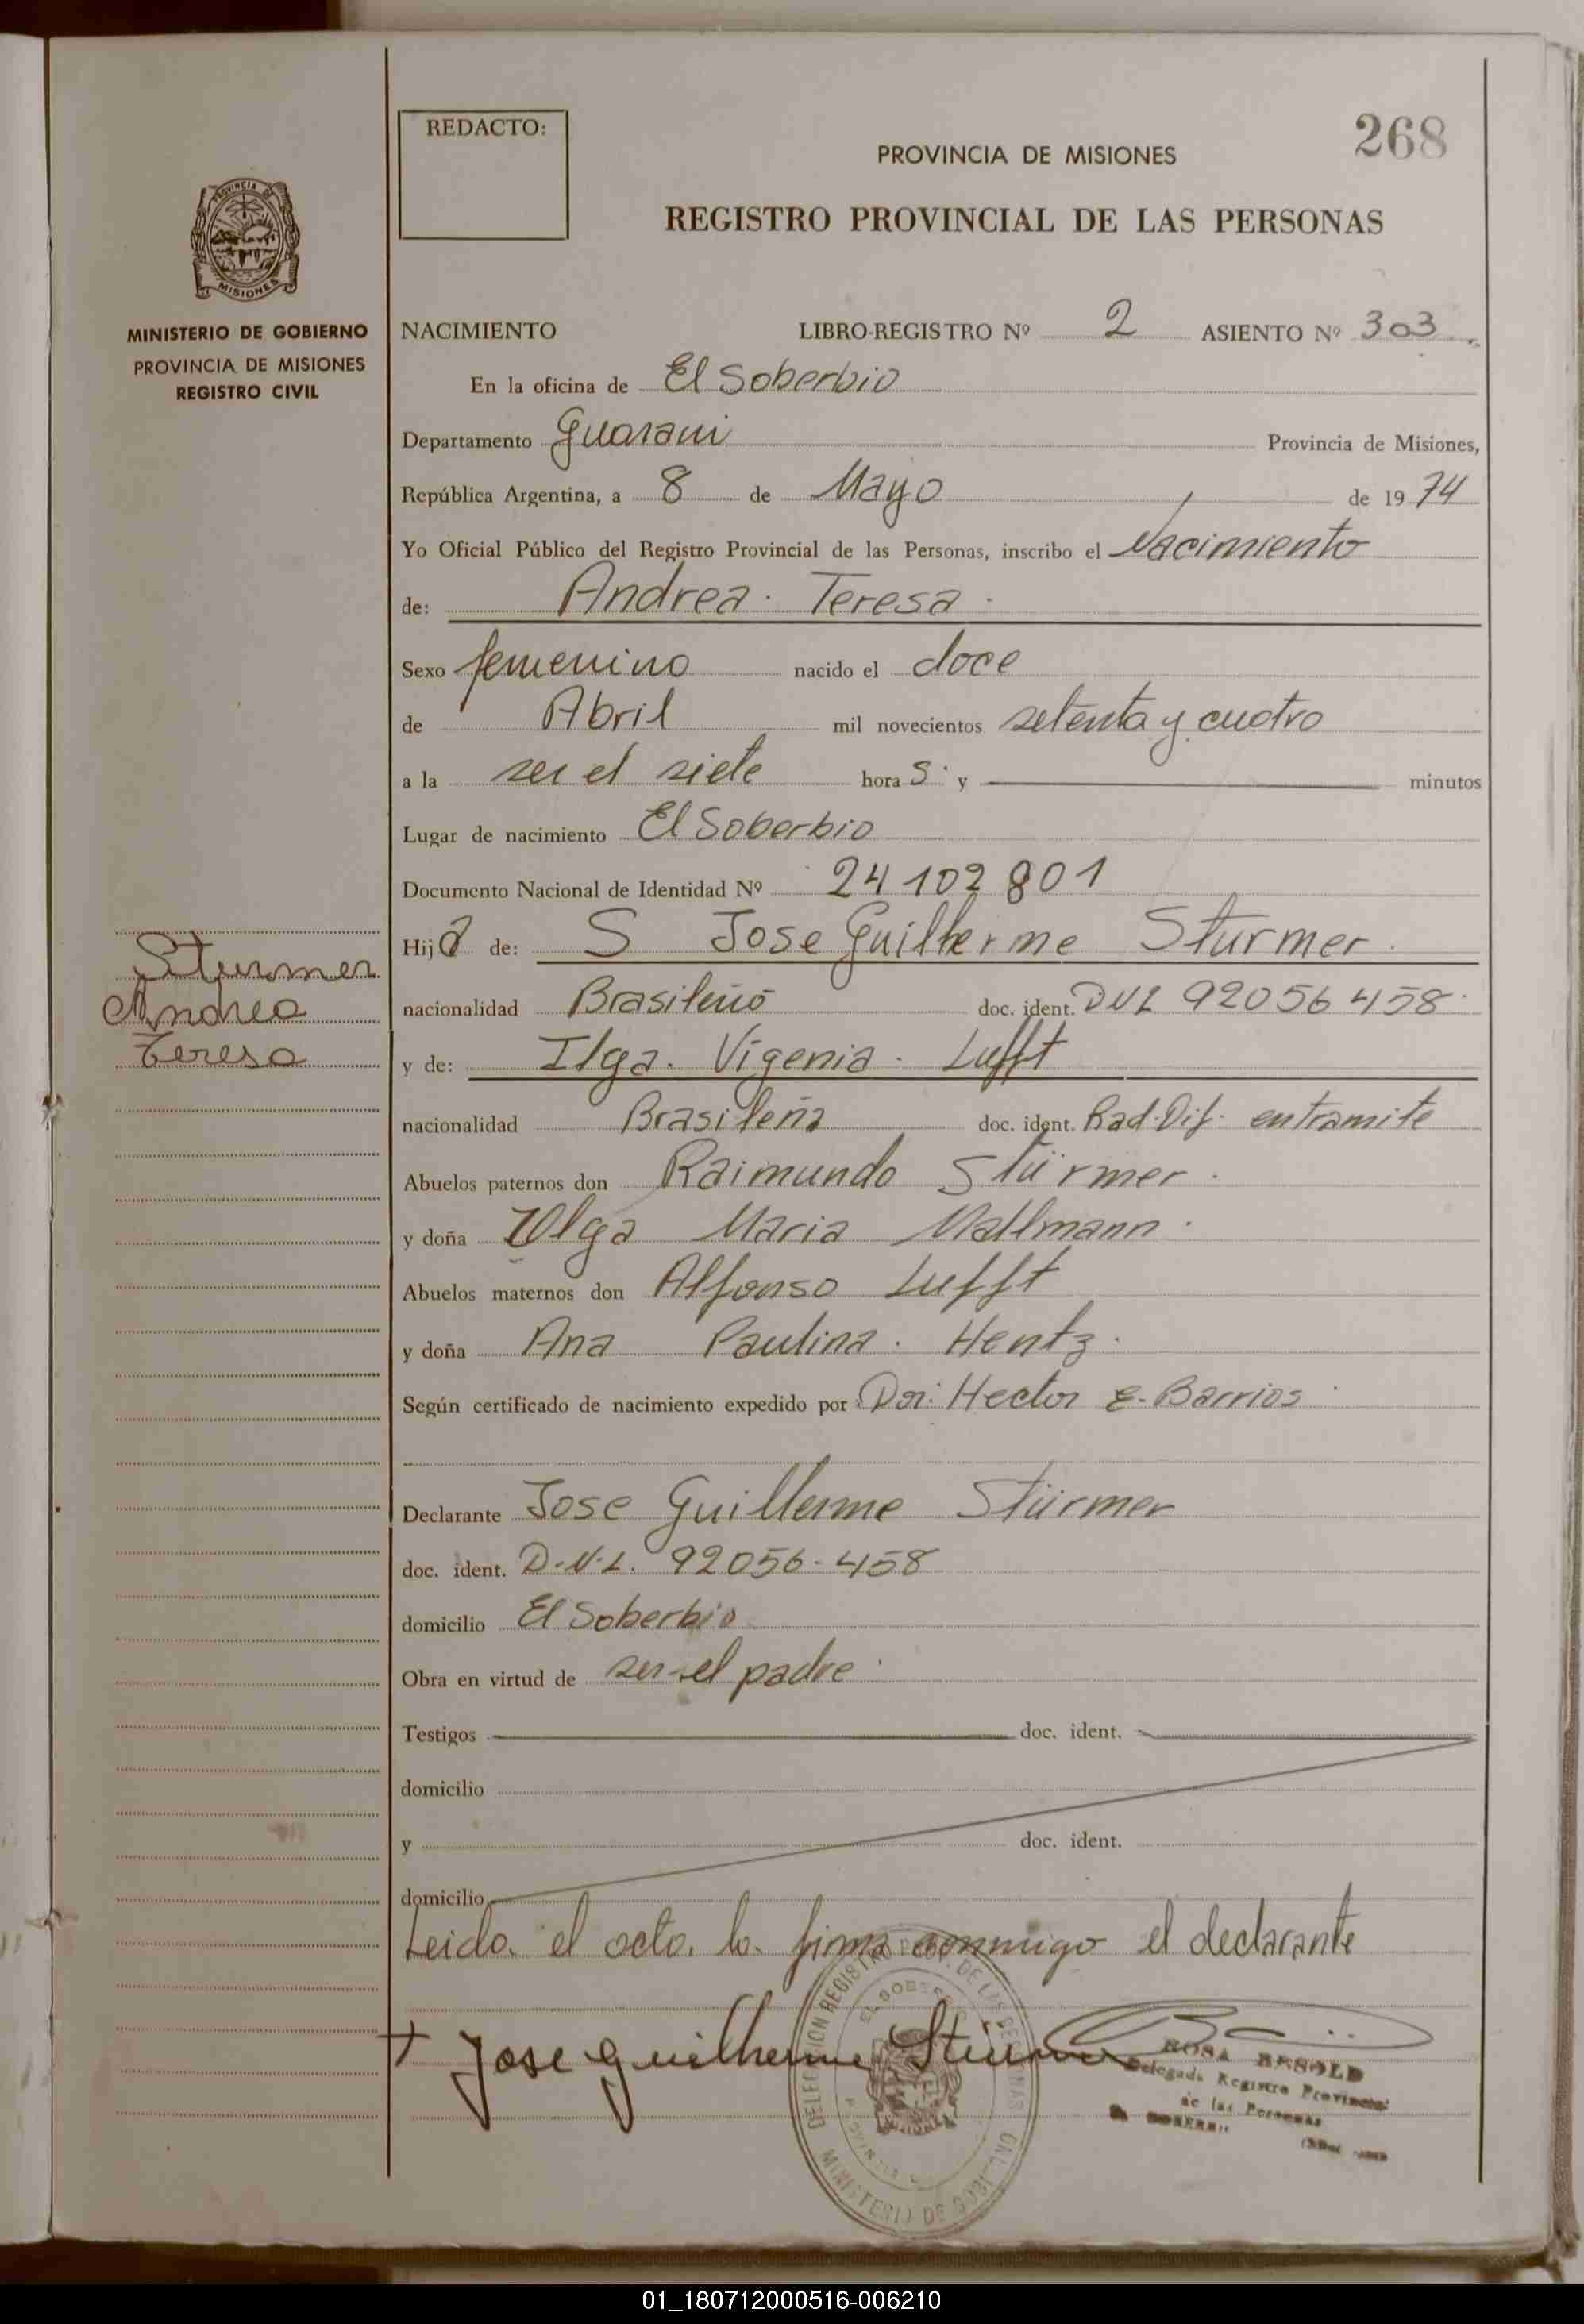 268
REDACTO:
PROVINCIA DE MISIONES
REGISTRO PROVINCIAL DE LAS PERSONAS
PROVINCIA DE
MISIONES
MINISTERIO DE GOBIERNO
PROVINCIA DE MISIONES
REGISTRO CIVIL
NACIMIENTO LIBRO-REGISTRO Nº 2 ASIENTO Nº 303
En la oficina de El Soberbio
Departamento Guarani Provincia de Misiones,
República Argentina, a 8 de Mayo de 1974
Yo Oficial Público del Registro Provincial de las Personas, inscribo el Nacimiento
de: Andrea Teresa
Sexo femenino nacido el doce
de Abril mil novecientos setenta y cuatro
a la ser el siete hora s y minutos
Lugar de nacimiento El Soberbio
Documento Nacional de Identidad Nº 24102801
Hija de: S Jose Guilherme Sturmer
nacionalidad Brasileño doc. ident. DNI 92056458
y de: Ilga Vigenia Lufft
nacionalidad Brasileña doc. ident. Rad. Dif. en tramite
Abuelos paternos don Raimundo Stürmer
y doña Olga Maria Mallmann
Abuelos maternos don Alfonso Lufft
y doña Ana Paulina Hentz
Según certificado de nacimiento expedido por Dr. Hector E. Barrios
Declarante Jose Guillerme Stürmer
doc. ident. D.N.I. 92056-458
domicilio El Soberbio
Obra en virtud de ser el padre
Testigos doc. ident.
domicilio
y doc. ident.
domicilio
Leido el acto, lo firma conmigo el declarante
Jose Guilherme Stürmer
ROSA BESOLD
Delegada Registro Provincial
de las Personas
Sturmer
Andrea
Teresa
MINISTERIO DE GOB
MISIONES
01_180712000516-006210